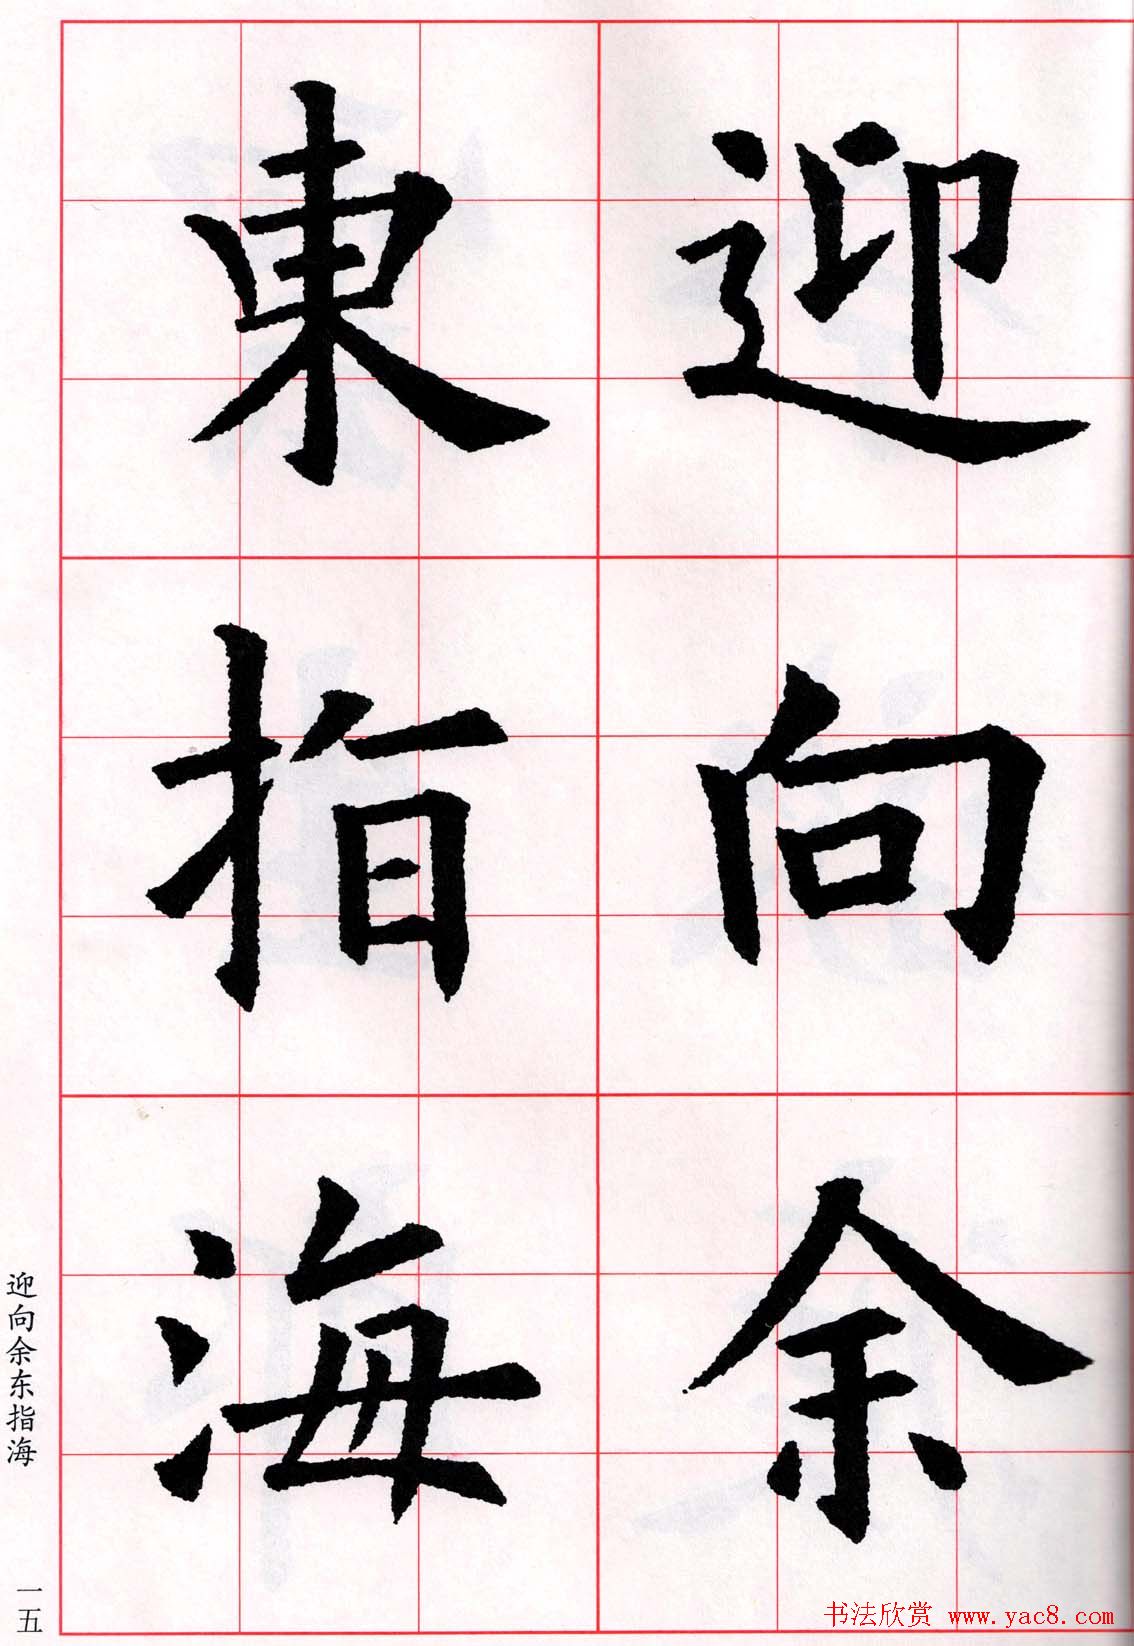 迎向余
東指海
迎向余东指海
一五
书法欣赏 www.yac8.com